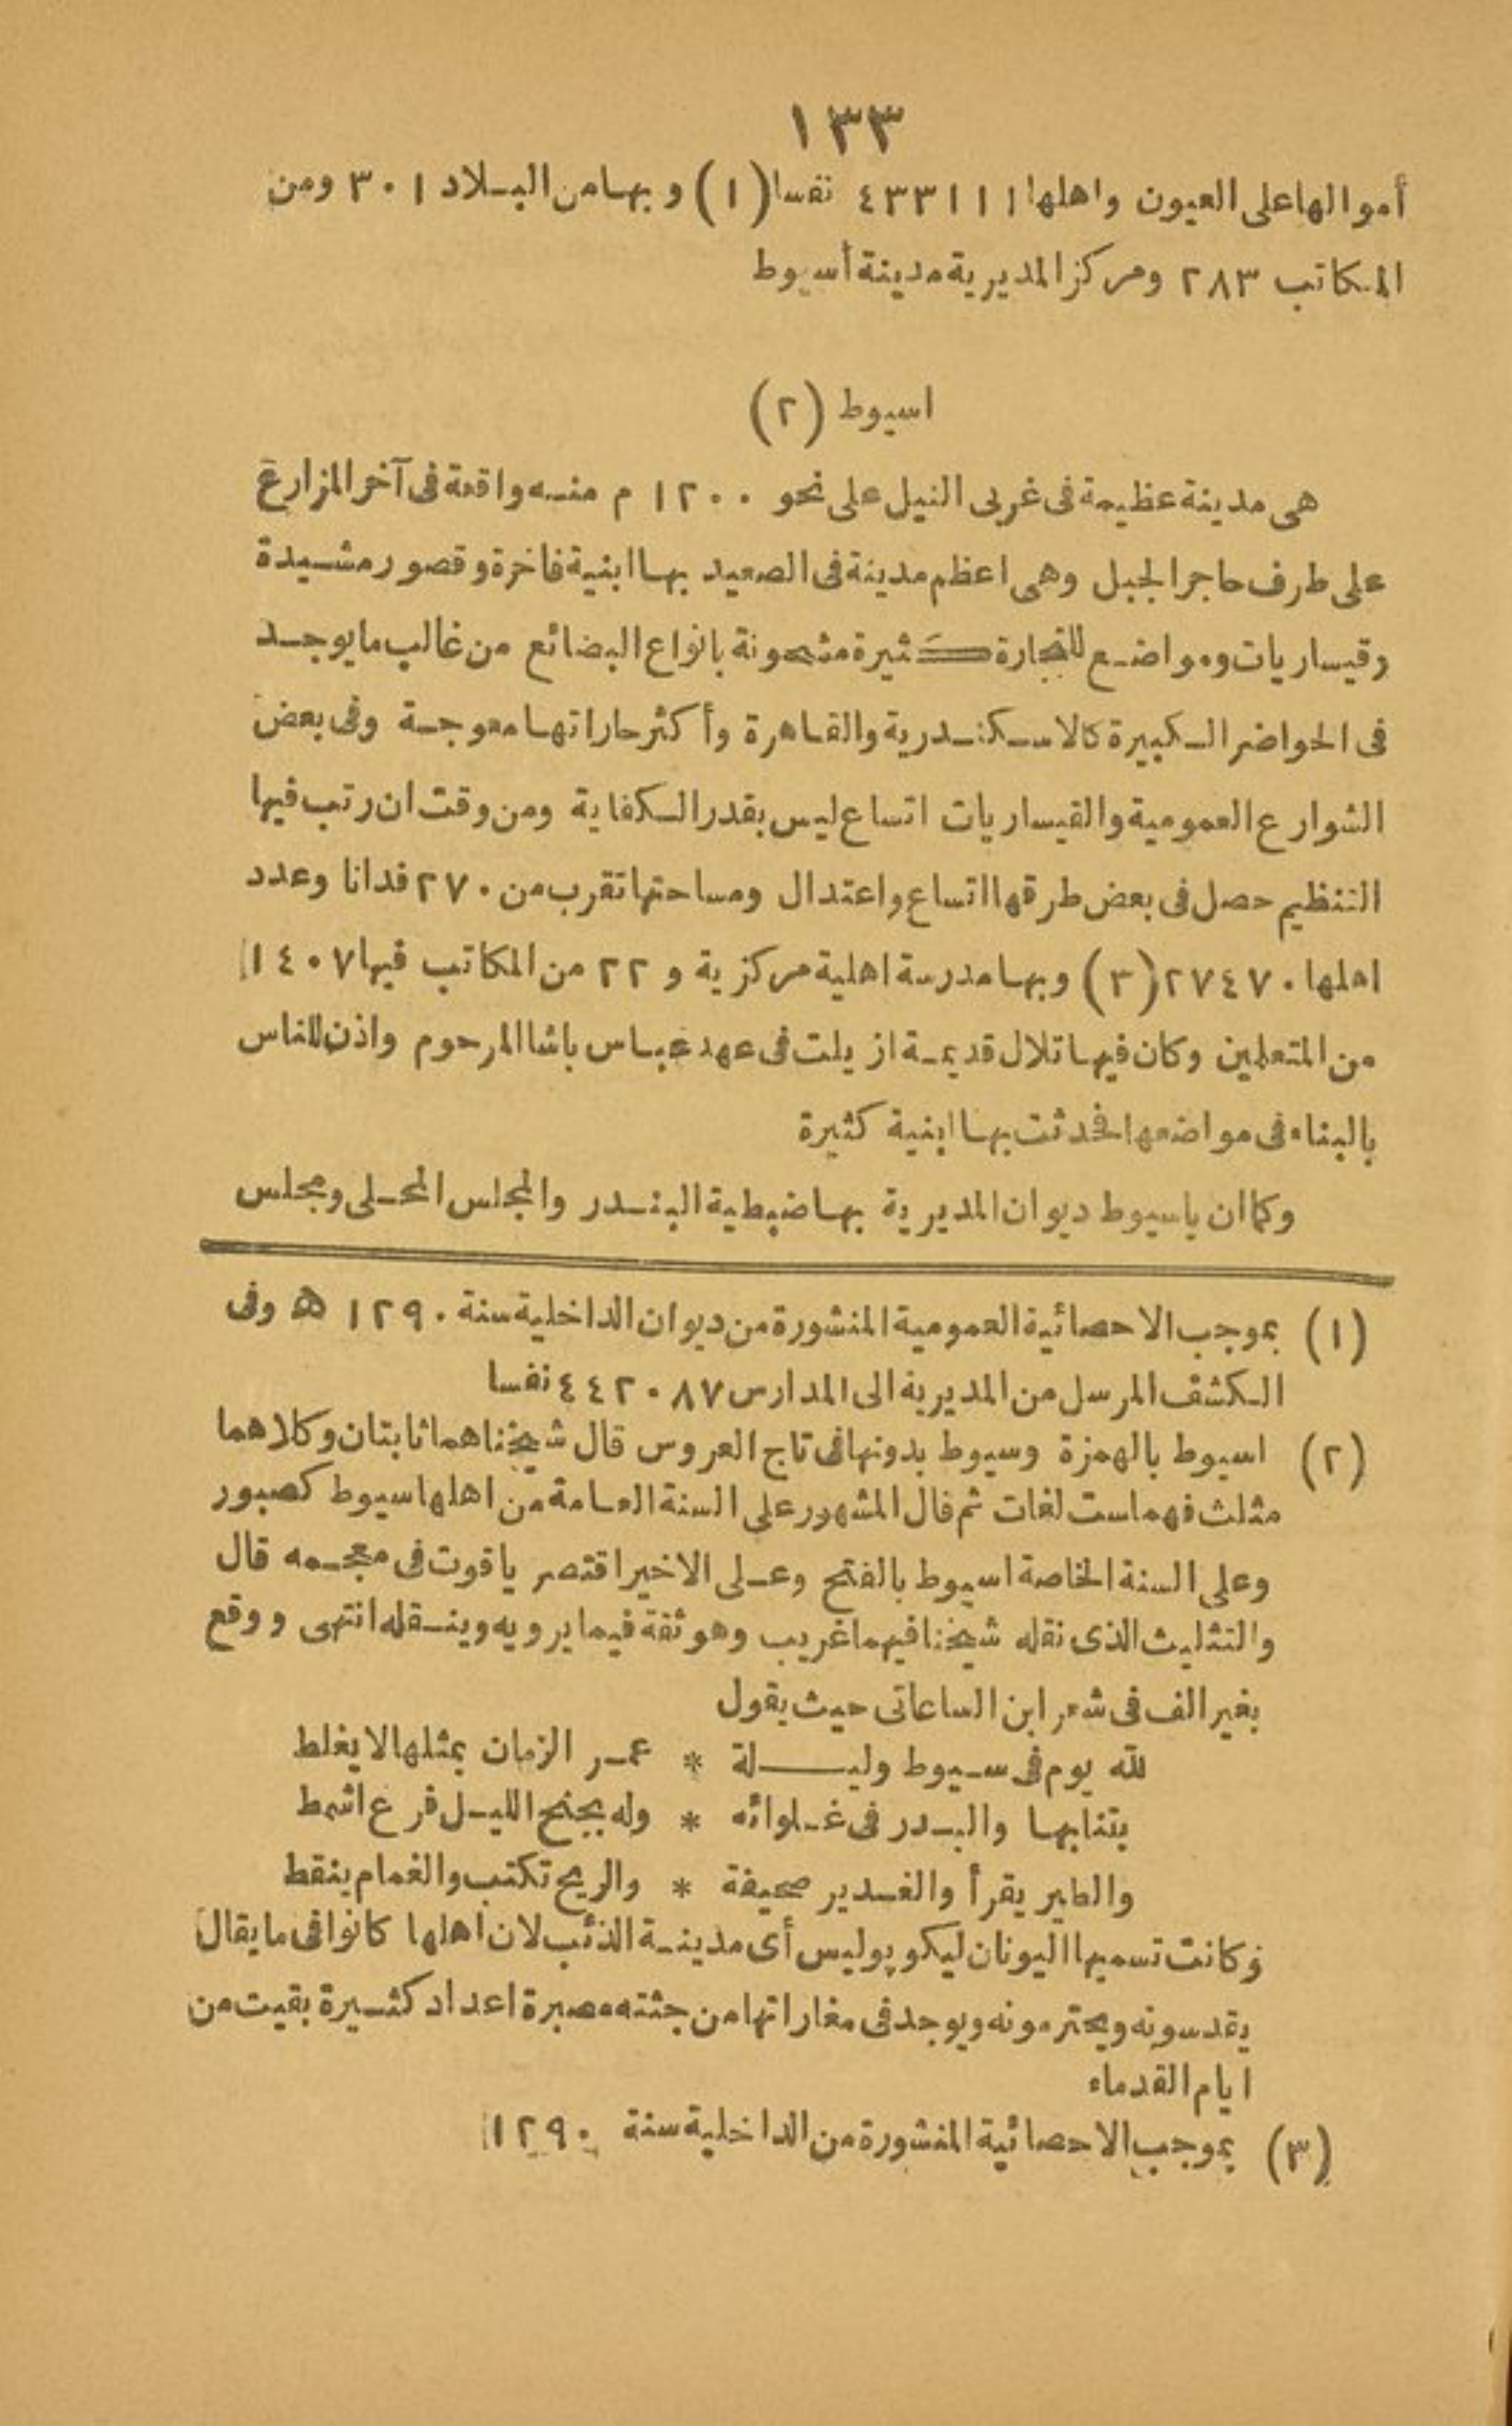 ١٣٣
أموالها على العيون واهلها ٤٣٣١١١ نفسا (١) وبها من البلاد ٣٠١ ومن
المكاتب ٢٨٣ ومركز المديرية مدينة أسيوط
اسيوط (٢)
هى مدينة عظيمة فى غربى النيل على نحو ١٢٠٠ م منه واقعة فى آخر المزارع
على طرف حاجر الجبل وهى اعظم مدينة فى الصعيد بها ابنية فاخرة وقصور مشيدة
وقيساريات ومواضع للتجارة كثيرة مشحونة بانواع البضائع من غالب ما يوجد
فى الحواضر الكبيرة كالاسكندرية والقاهرة وأكثر حاراتها معوجة وفى بعض
الشوارع العمومية والقيساريات اتساع ليس بقدر الكفاية ومن وقت ان رتب فيها
التنظيم حصل فى بعض طرقها اتساع واعتدال ومساحتها تقرب من ٢٧٠ فدانا وعدد
اهلها ٢٧٤٧٠ (٣) وبها مدرسة اهلية مركزية و ٢٢ من المكاتب فيها ١٤٠٧
من المتعلمين وكان فيها تلال قديمة ازيلت فى عهد عباس باشا المرحوم واذن للناس
بالبناء فى مواضعها فحدثت بها ابنية كثيرة
وكما ان باسيوط ديوان المديرية بها ضبطية البندر والمجلس المحلى ومجلس
(١) بموجب الاحصائية العمومية المنشورة من ديوان الداخلية سنة ١٢٩٠ ه وفى
الكشف المرسل من المديرية الى المدارس ٤٤٢٠٨٧ نفسا
(٢) اسيوط بالهمزة وسيوط بدونها فى تاج العروس قال شيخنا هما ثابتان وكلاهما
مثلث فهما ست لغات ثم قال المشهور على السنة العامة من اهلها سيوط كصبور
وعلى السنة الخاصة اسيوط بالفتح وعلى الاخير اقتصر ياقوت فى معجمه قال
والتثليث الذى نقله شيخنا فيهما غريب وهو ثقة فيما يرويه وينقله انتهى ووقع
بغير الف فى شعر ابن الساعاتى حيث يقول
لله يوم فى سيوط وليلة * عمر الزمان بمثلها لا يغلط
بتنا بها والبدر فى غلوائه * وله بجنح الليل فرع اشمط
والطير يقرأ والغدير صحيفة * والريح تكتب والغمام ينقط
وكانت تسميها اليونان ليكوپوليس أى مدينة الذئب لان اهلها كانوا فى ما يقال
يقدسونه ويحترمونه ويوجد فى مغاراتها من جثته مصبرة اعداد كثيرة بقيت من
ايام القدماء
(٣) بموجب الاحصائية المنشورة من الداخلية سنة ١٢٩٠